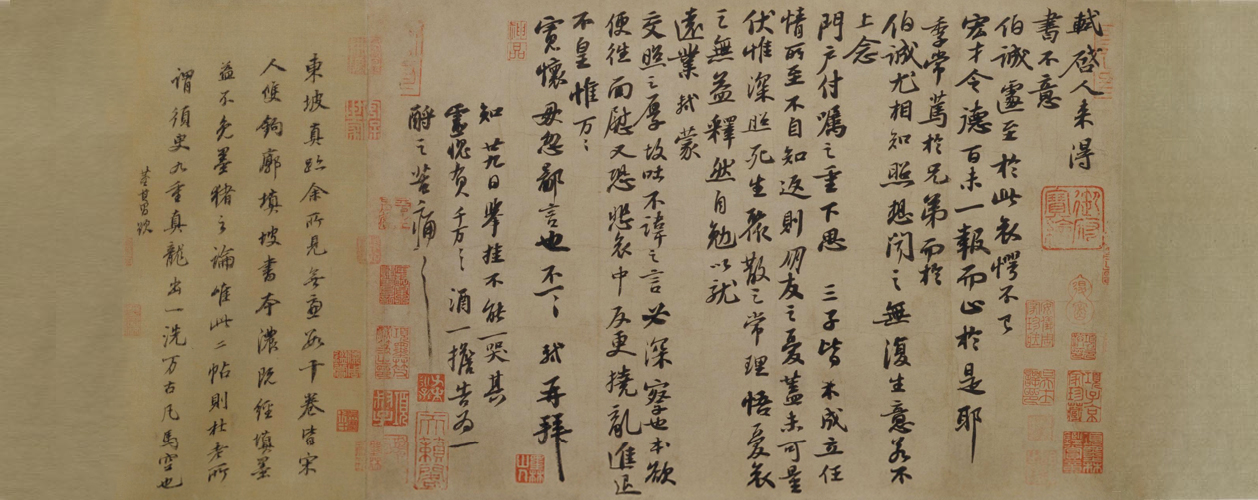 軾啓人來得
書不意
伯誠遽至於此哀愕不已
宏才令德百未一報而止於是耶
季常篤於兄弟而於
伯誠尤相知照想聞之無復生意若不
上念
門戶付囑之重下思三子皆未成立任
情所至不自知返則朋友之憂蓋未可量
伏惟深照死生聚散之常理悟憂哀
之無益釋然自勉以就
遠業軾蒙
交照之厚故吐不諱之言必深察也本欲
便往面慰又恐悲哀中反更撓亂進退
不皇惟万万
寬懷毋忽鄙言也不一一軾再拜
知廿九日舉挂不能一哭其
靈愧負千万千万酒一擔告為一
酹之苦痛苦痛
東坡真跡余所見無慮數十卷皆宋
人雙鉤廓填坡書本濃既經填墨
益不免墨猪之論唯此二帖則杜老所
謂須臾九重真龍出一洗万古凡馬空也
董其昌題